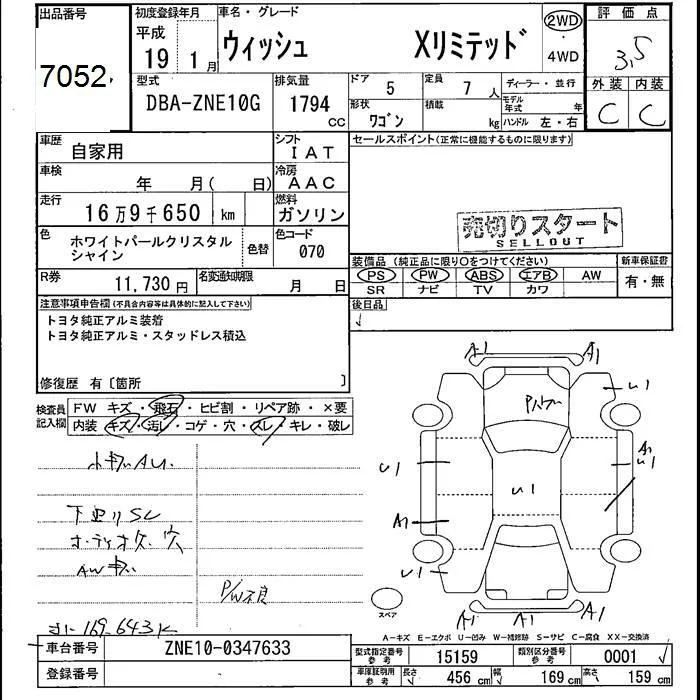 出品番号 初度登録年月 車名・グレード 評価点
7052 平成 19 1月 ウィッシュ Xリミテッド 2WD・4WD 3.5
型式 排気量 ドア 5 定員 7人 ディーラー・並行 外装 内装
DBA-ZNE10G 1794cc 形状 ワゴン 積載 kg モデル年式 年 C C
ハンドル 左・右
車歴 自家用 シフト IAT セールスポイント(正常に機能するものに限ります)
車検 年 月(日) 冷房 AAC
走行 16万9千650 km 燃料 ガソリン
売切りスタート
SELLOUT
色 ホワイトパールクリスタルシャイン 色替 色コード 070
装備品(純正品に限り○をつけてください) 新車保証書
PS PW ABS エアB AW 有・無
SR ナビ TV カワ
R券 11,730円 名変通知期限 月 日
後日品
注意事項申告欄(不具合内容等は具体的に記入して下さい)
トヨタ純正アルミ装着
トヨタ純正アルミ・スタッドレス積込
修復歴 有〔箇所 〕
検査員記入欄 FW キズ・飛石・ヒビ割・リペア跡・×要
内装 キズ・汚レ・コゲ・穴・スレ・キレ・破レ
A1 A1
U1
U1 A1 U1
U1
A1
U1
A1 A1 A1
下廻りSL
P/W不良
169,643K
スペア
A-キズ E-エクボ U-凹み W-補修跡 S-サビ C-腐食 XX-交換済
車台番号 ZNE10-0347633
型式指定番号 参考 15159 類別区分番号 参考 0001
登録番号
車庫証明用 参考 長さ 456cm 幅 169cm 高さ 159cm